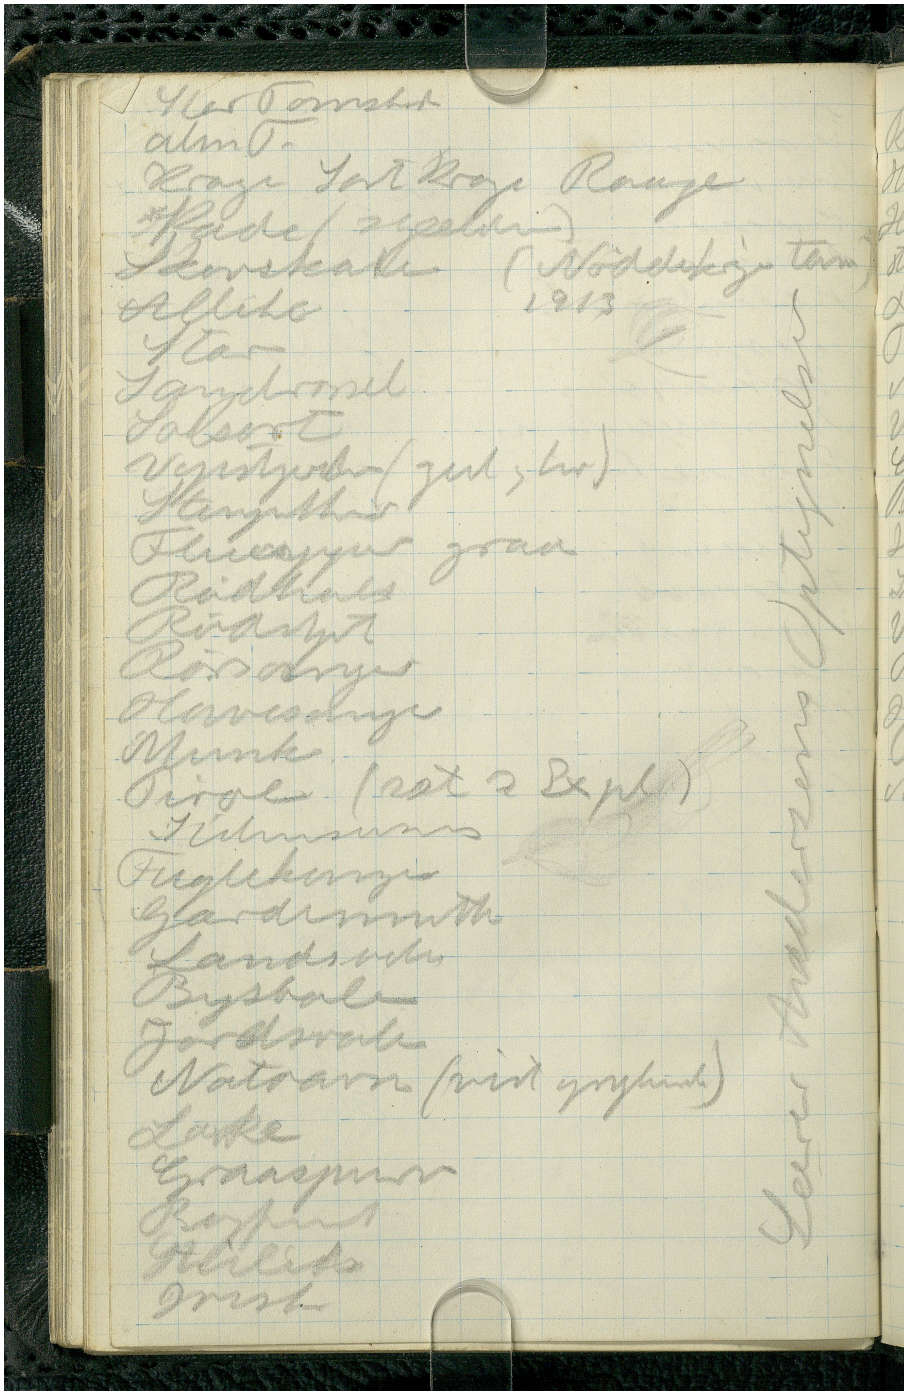 Stor Tornskade
alm T.
Krage Sort Krage Raage
Skovskade (Nøddekrige Tarm)
Allike 1913
Stær
Sangdrossel
Solsort
Vipstjert (gul, hv)
Stenpikker
Fluesnapper graa
Rødhals
Rødstjert
Rørsanger
Havesanger
Munk
Pirol (set 2 Expl.)
Fuglekonge
Gærdesmutte
Landsvale
Bysvale
Jordsvale
Natravn (vist ynglende)
Lærke
Graaspurv
Bogfink
Stillids
Irisk
Lærer Andersens Optegnelser